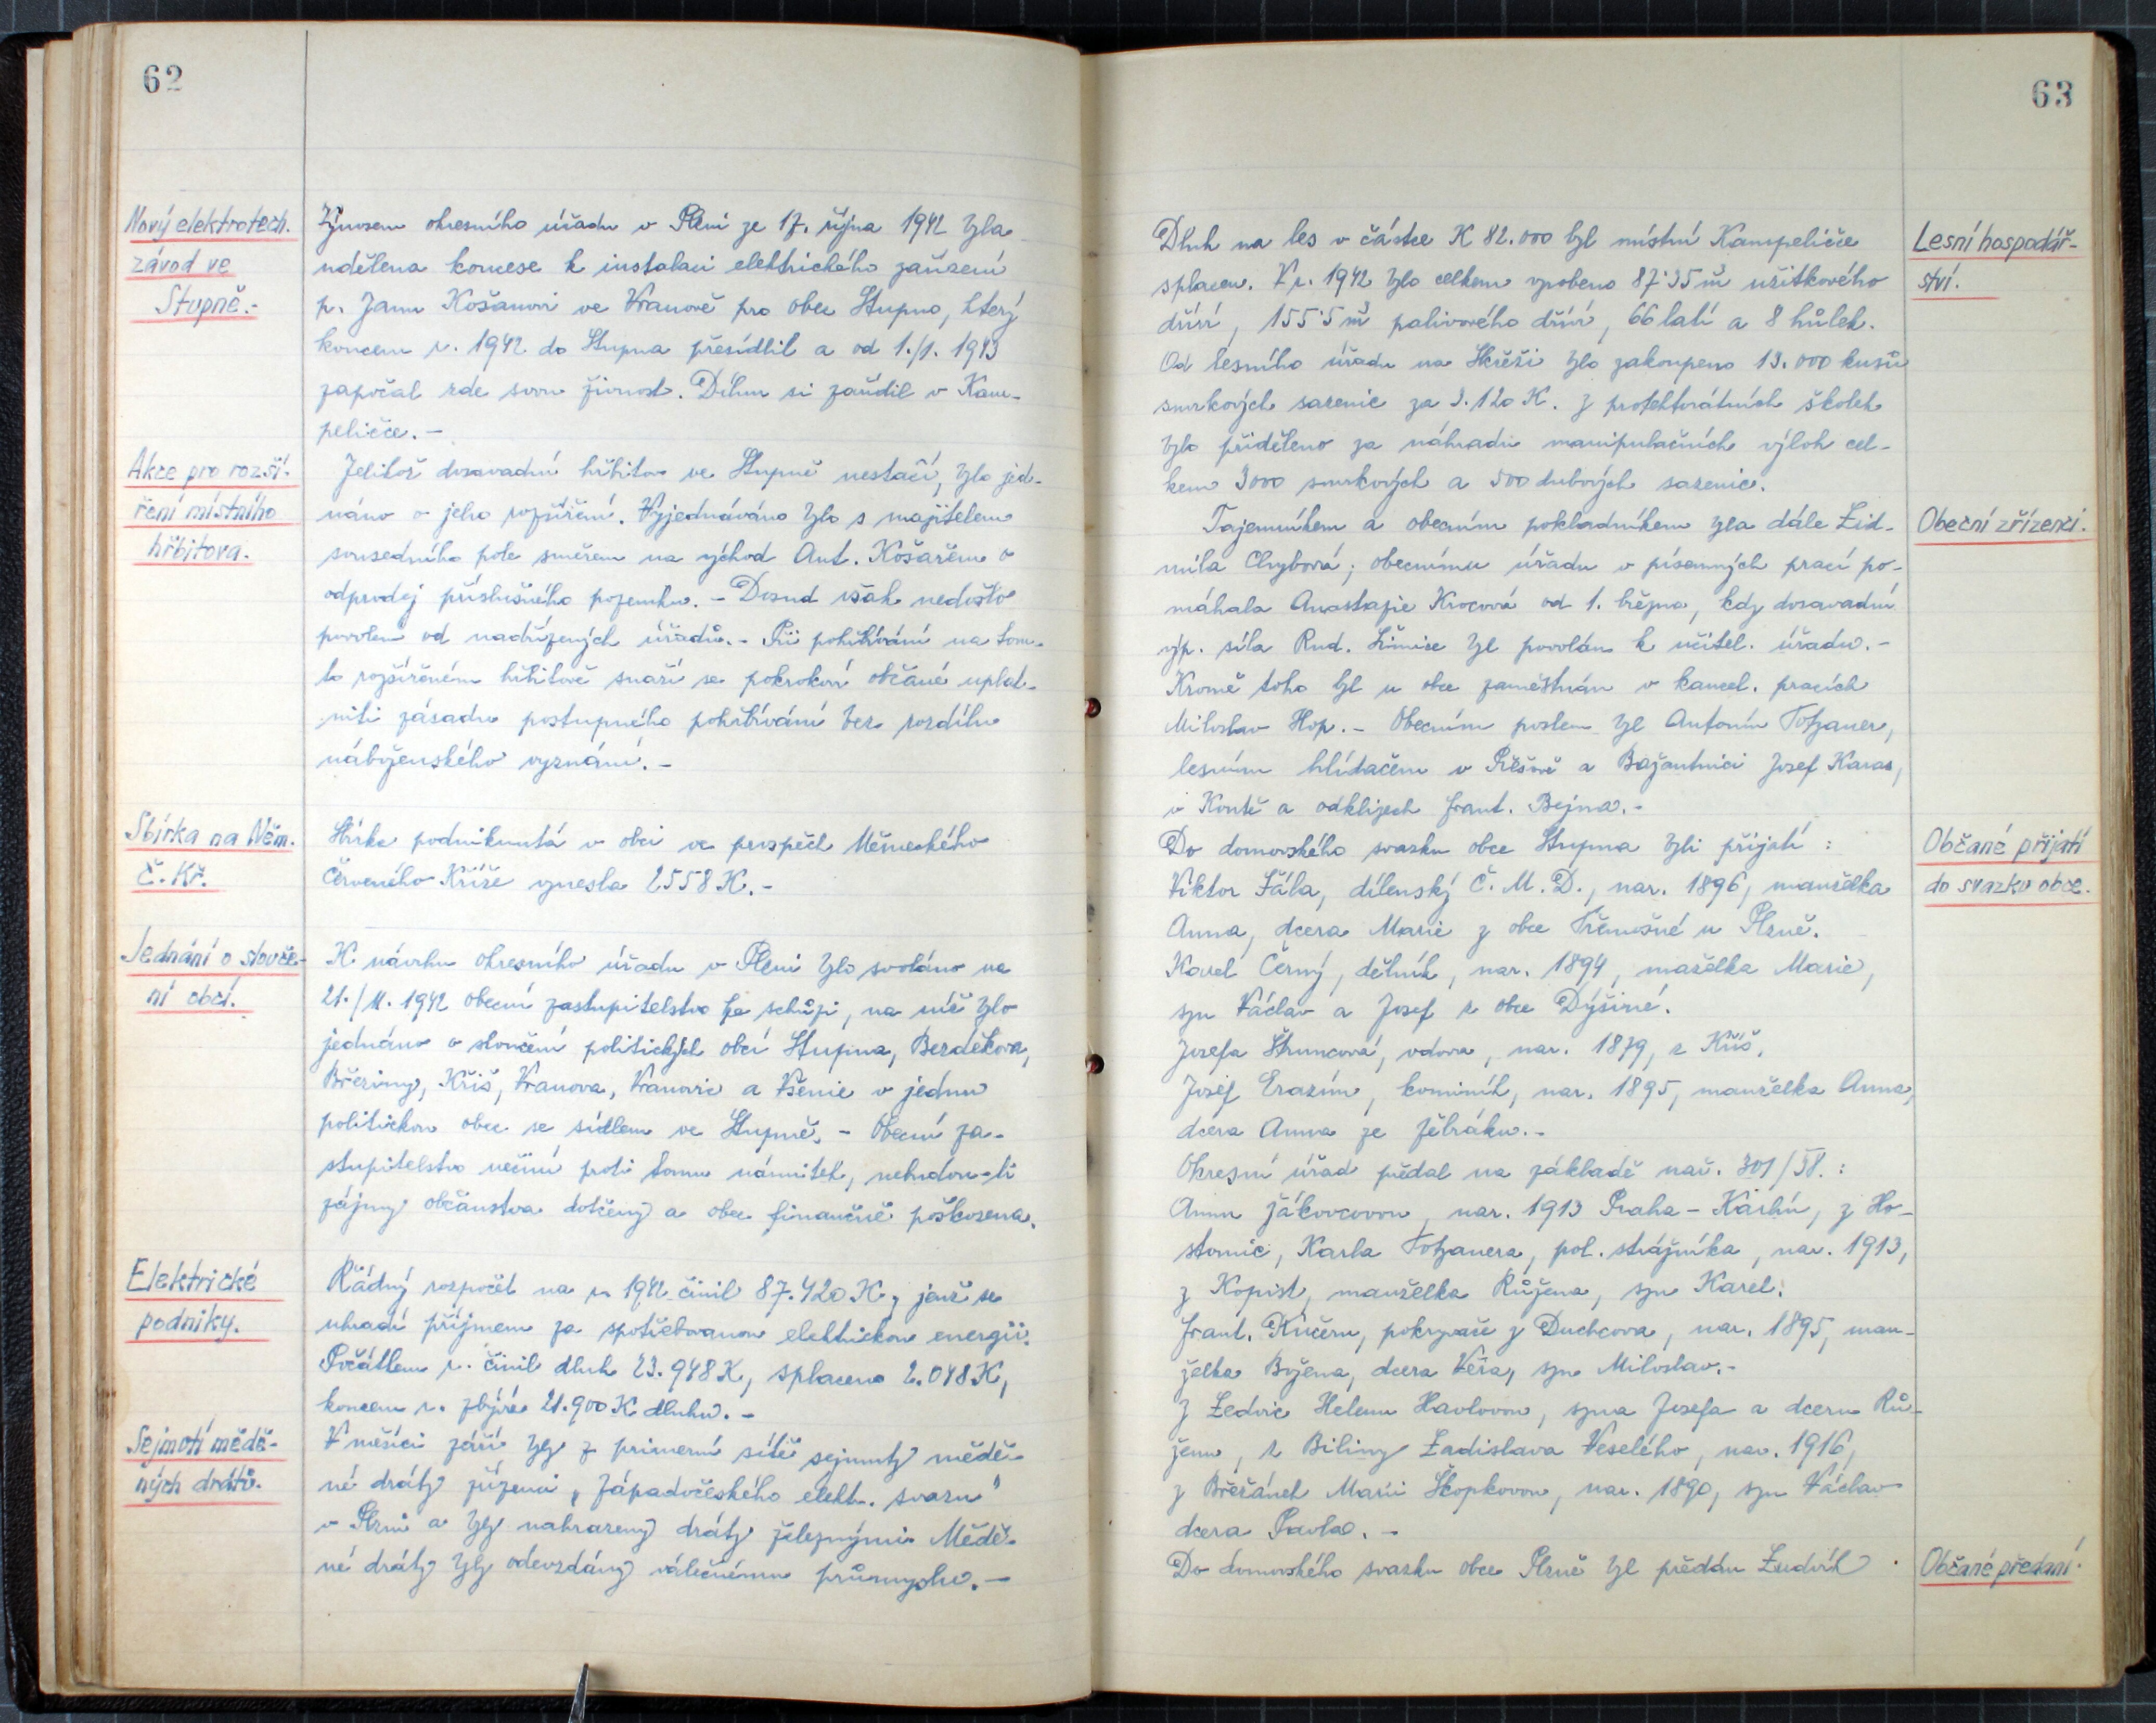 62
Nový elektrotech.
závod ve
Stupně.-
Výnosem okresního úřadu v Plzni ze 17. října 1942 byla
udělena koncese k instalaci elektrického zařízení
p. Janu Košanovi ve Vranově pro obec Stupno, který
koncem r. 1942 do Stupna přesídlil a od 1./1. 1943
započal zde svou živnost. Dílnu si zařídil v Kam-
peličce.-
Akce pro rozší-
ření místního
hřbitova.
Jelikož dosavadní hřbitov ve Stupně nestačí, bylo jed-
náno o jeho rozšíření. Vyjednáváno bylo s majitelem
sousedního pole směrem na východ Ant. Košařem o
odprodej příslušného pozemku. - Dosud však nedošlo
povolení od nadřízených úřadů.- Při pohřbívání na tom-
to rozšířeném hřbitově snaží se pokrokoví občané uplat-
niti zásadu postupného pohřbívání bez rozdílu
náboženského vyznání.-
Sbírka na Něm.
Č. Kř.
Sbírka podniknutá v obci ve prospěch Německého
Červeného Kříže vynesla 2558 K.-
Jednání o slouče-
ní obcí.
K návrhu okresního úřadu v Plzni bylo svoláno na
21./11. 1942 obecní zastupitelstvo ke schůzi, na níž bylo
jednáno o sloučení politických obcí Stupna, Bezděkova,
Březiny, Kříš, Vranova, Vranovic a Všenic v jednu
politickou obec se sídlem ve Stupně. - Obecní za-
stupitelstvo nečiní proti tomu námitek, nebudou-li
zájmy občanstva dotčeny a obec finančně poškozena.
Elektrické
podniky.
Řádný rozpočet na r. 1942 činil 87.420 K, jenž se
uhradí příjmem za spotřebovanou elektrickou energii.
Počátkem r. činil dluh 23.948 K, splaceno 2.048 K,
koncem r. zbývá 21.900 K dluhu.-
Sejmutí mědě-
ných drátů.
V měsíci září byly z primerní sítě sejmuty mědě-
né dráty zřízenci „Západočeského elektr. svazu"
v Plzni a byly nahrazeny dráty železnými. Mědě-
né dráty byly odevzdány válečnému průmyslu.-
63
Dluh na les v částce K 82.000 byl místní Kampeličce
splacen. V r. 1942 bylo celkem vyrobeno 87·35 m³ užitkového
dříví, 155·5 m³ palivového dříví, 66 latí a 8 hůlek.
Od lesního úřadu na Skříži bylo zakoupeno 13.000 kusů
smrkových sazenic za 3.120 K. Z protektorátních školek
bylo přiděleno za náhradu manipulačních výloh cel-
kem 3000 smrkových a 500 dubových sazenic.
Lesní hospodář-
ství.
Tajemníkem a obecním pokladníkem byla dále Lid-
mila Chybová; obecnímu úřadu v písemných prací po-
máhala Anastazie Krocová od 1. března, kdy dosavadní
výp. síla Rud. Šimice byl povolán k učitel. úřadu.-
Kromě toho byl u obce zaměstnán v kancel. pracích
Miloslav Hop.- Obecním poslem byl Antonín Totzauer,
lesním hlídačem v Příšově a Bažantnici Josef Karas,
v Koutě a odklizech Frant. Bejna.-
Obecní zřízenci.
Do domovského svazku obce Stupna byli přijati:
Viktor Fála, dílenský Č. M. D., nar. 1896, manželka
Anna, dcera Marie z obce Třemošné u Plzně.
Karel Černý, dělník, nar. 1894, mažělka Marie,
syn Václav a Josef z obce Dýšiné.
Josefa Štruncová, vdova, nar. 1879, z Kříš.
Josef Erazím, kominík, nar. 1895, manželka Anna,
dcera Anna ze Žebráku.-
Okresní úřad předal na základě nař. 301/38.:
Annu Jákovcovou, nar. 1913 Praha - Karlín, z Ho-
stomic, Karla Totzauera, pol. strážníka, nar. 1913,
z Kopist, manželka Růžena, syn Karel.
Frant. Kučeru, pokrývače z Duchcova, nar. 1895, man-
želka Božena, dcera Věra, syn Miloslav.-
Z Ledvic Helenu Havlovou, syna Josefa a dceru Rů-
ženu, z Biliny Ladislava Veselého, nar. 1916,
z Břežánek Marii Škopkovou, nar. 1890, syn Václav
dcera Pavla.-
Občané přijatí
do svazku obce.
Do domovského svazku obce Plzně byl předán Ludvík
Občané předaní.